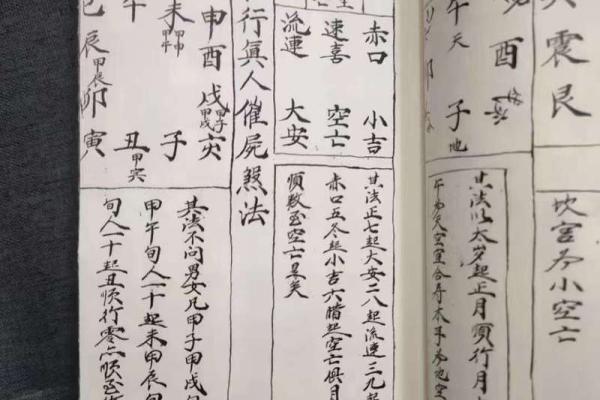 震艮
坎宫為小空亡
酉
午天
子地
其法以太岁起正月順行月
赤口 小吉
速喜 空亡
流連 大安
其法正七起大安二八起流連三九起
赤口五冬起小吉六腊起空亡俱月
順数至空亡是矣
行真人催屍煞法
申酉戌甲戌甲子亥
未甲申甲午 子
午 丑甲寅
巳辰甲辰卯寅
其法不问男女凡甲子甲戌旬
甲午旬人一十起未甲辰旬
旬人一十起丑順行零亦順至